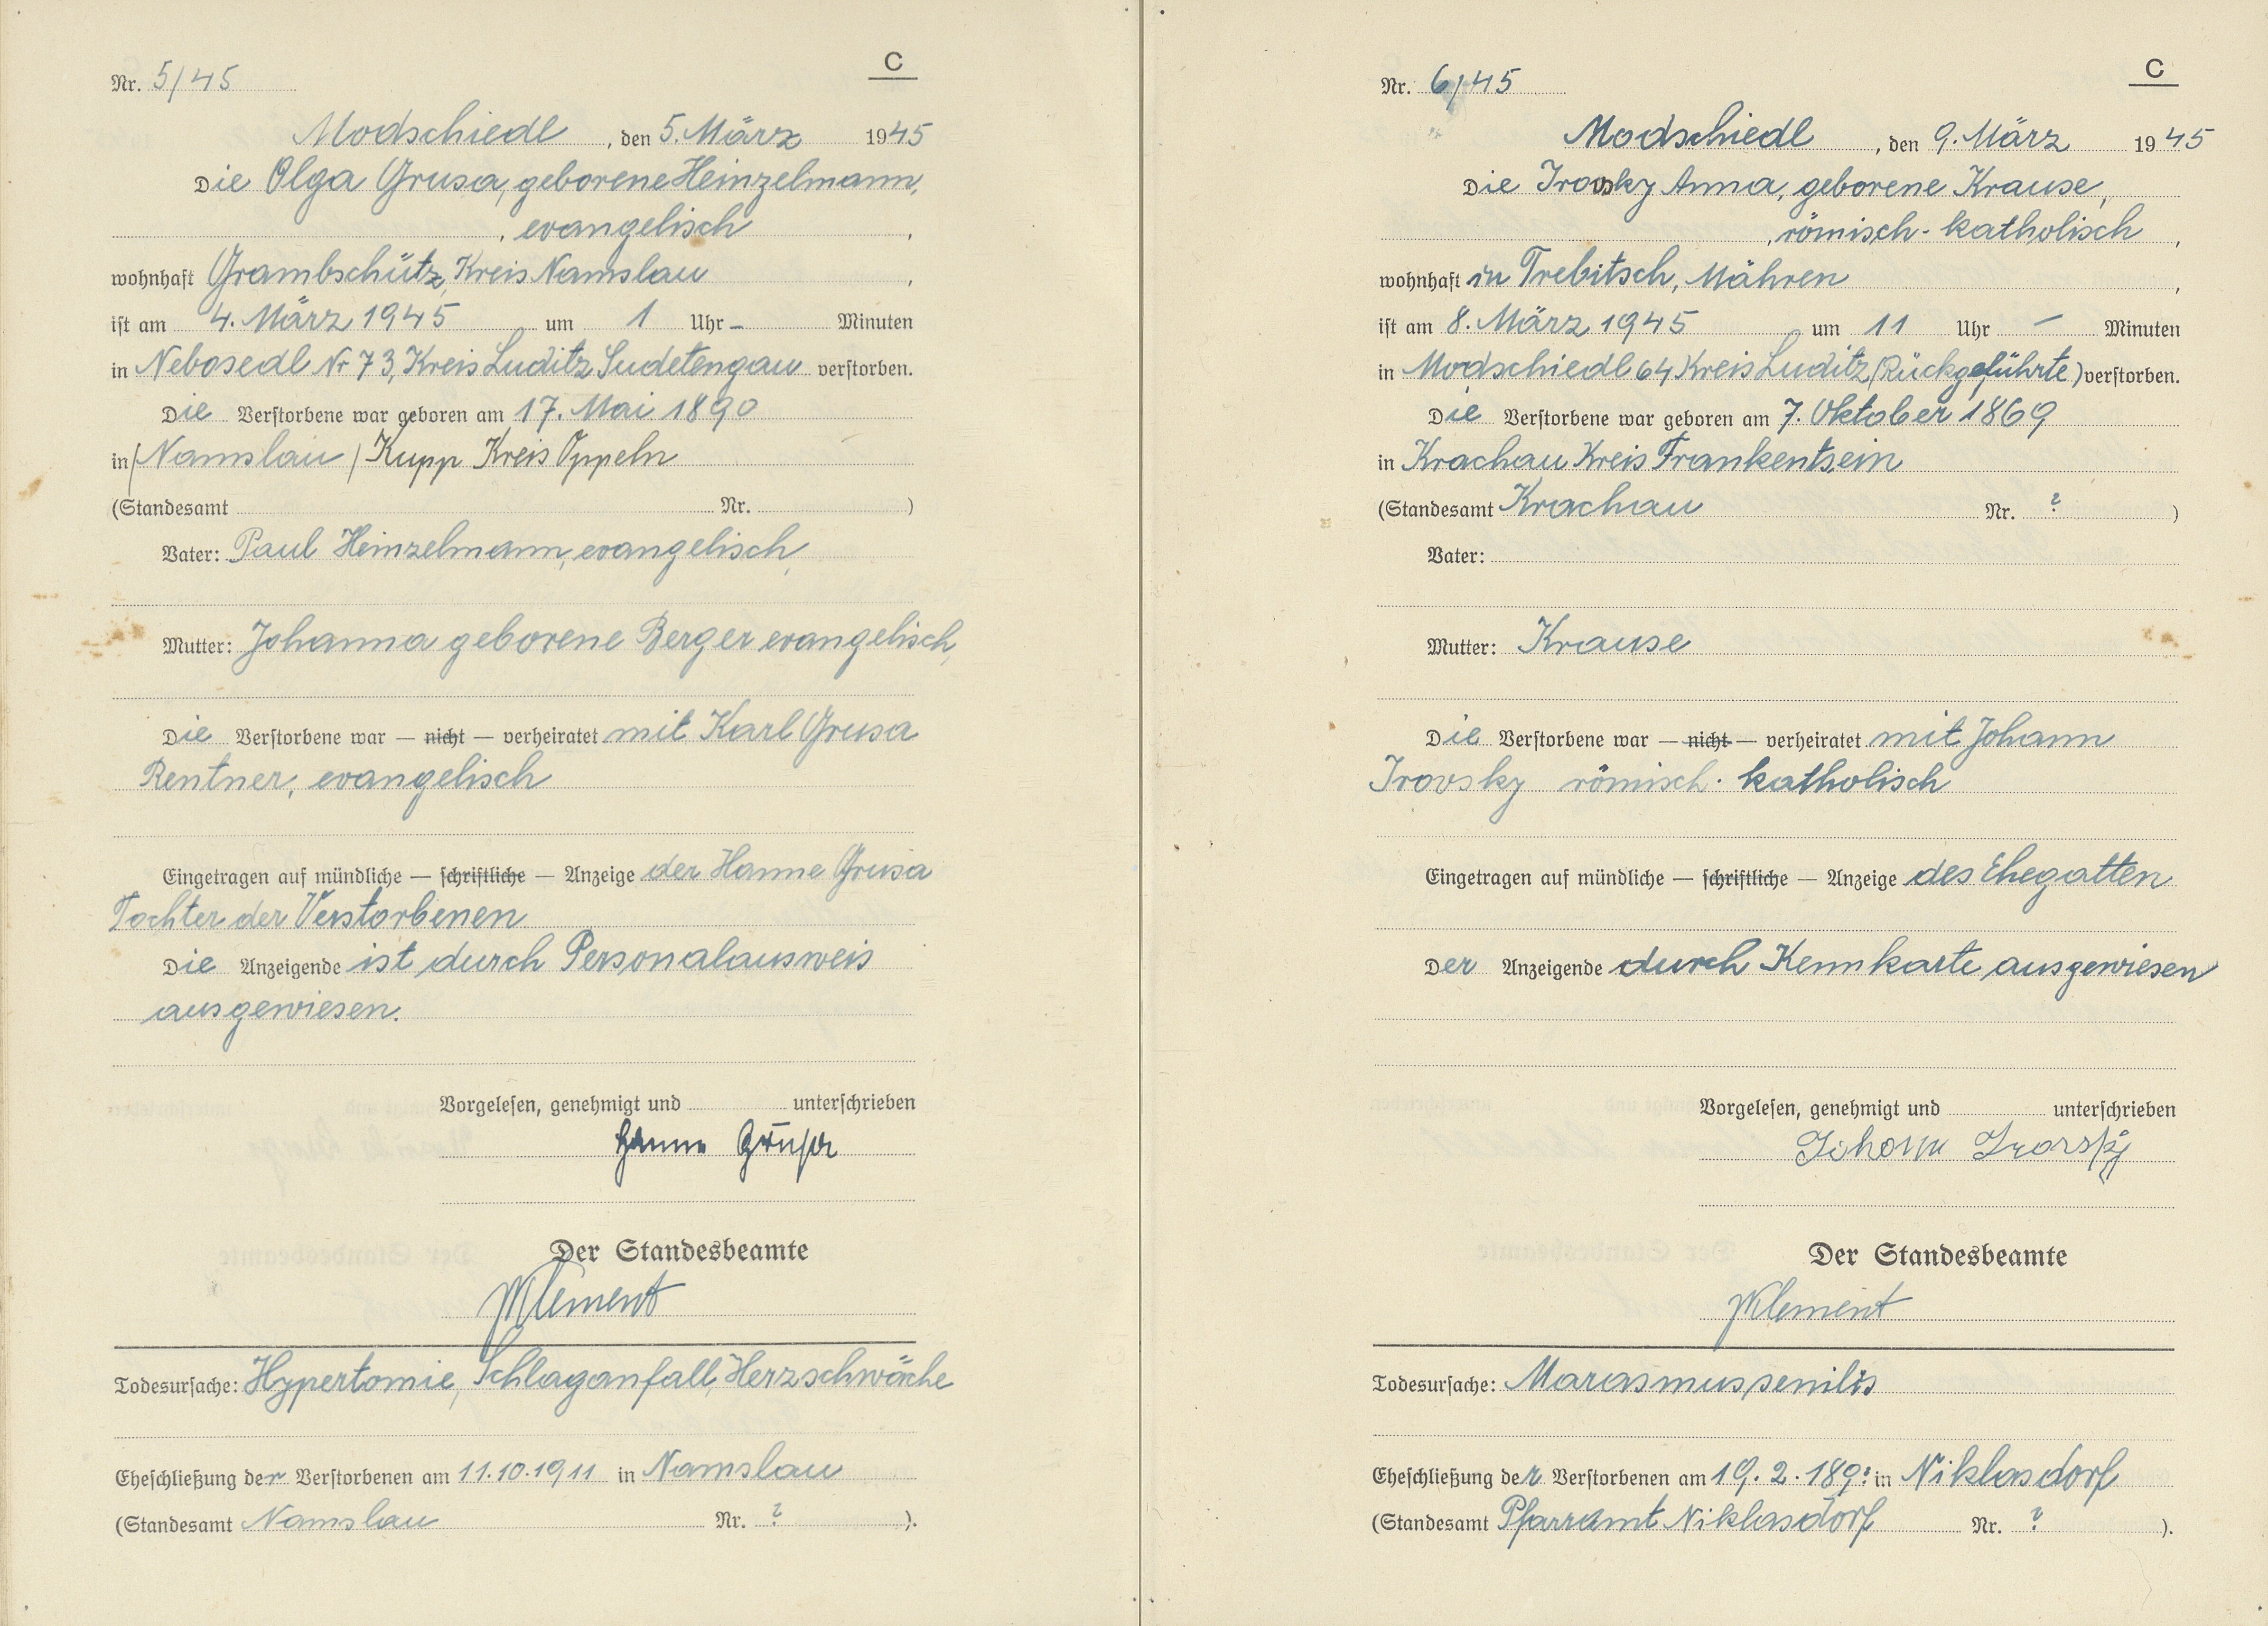 C
Nr. 5/45
Modschiedl, den 5. März 1945
Die Olga Grusa, geborene Heinzelmann,
, evangelisch,
wohnhaft Grambschütz, Kreis Namslau,
ist am 4. März 1945 um 1 Uhr – Minuten
in Nebosedl Nr 73, Kreis Luditz Sudetengau verstorben.
Die Verstorbene war geboren am 17. Mai 1890
in (Namslau) Kupp Kreis Oppeln
(Standesamt Nr. )
Vater: Paul Heinzelmann, evangelisch,
Mutter: Johanna geborene Berger evangelisch,
Die Verstorbene war — nicht — verheiratet mit Karl Grusa
Rentner, evangelisch
Eingetragen auf mündliche — schriftliche — Anzeige der Hanne Grusa
Tochter der Verstorbenen
Die Anzeigende ist durch Personalausweis
ausgewiesen.
Vorgelesen, genehmigt und unterschrieben
Hanne Grusa
Der Standesbeamte
Klement
Todesursache: Hypertomie, Schlaganfall, Herzschwäche
Eheschließung der Verstorbenen am 11.10.1911 in Namslau
(Standesamt Namslau Nr. ? ).
C
Nr. 6/45
Modschiedl, den 9. März 1945
Die Irovsky Anna, geborene Krause,
, römisch-katholisch,
wohnhaft in Trebitsch, Mähren,
ist am 8. März 1945 um 11 Uhr – Minuten
in Modschiedl 64 Kreis Luditz (Rückgeführte) verstorben.
Die Verstorbene war geboren am 7. Oktober 1869
in Krachau Kreis Frankentsein
(Standesamt Krachau Nr. ? )
Vater:
Mutter: Krause
Die Verstorbene war — nicht — verheiratet mit Johann
Irovsky römisch-katholisch
Eingetragen auf mündliche — schriftliche — Anzeige des Ehegatten
Der Anzeigende durch Kennkarte ausgewiesen
Vorgelesen, genehmigt und unterschrieben
Johann
Der Standesbeamte
Klement
Todesursache: Marasmus senilis
Eheschließung der Verstorbenen am 19.2.189? in Niklasdorf
(Standesamt Pfarramt Niklasdorf Nr. ? ).